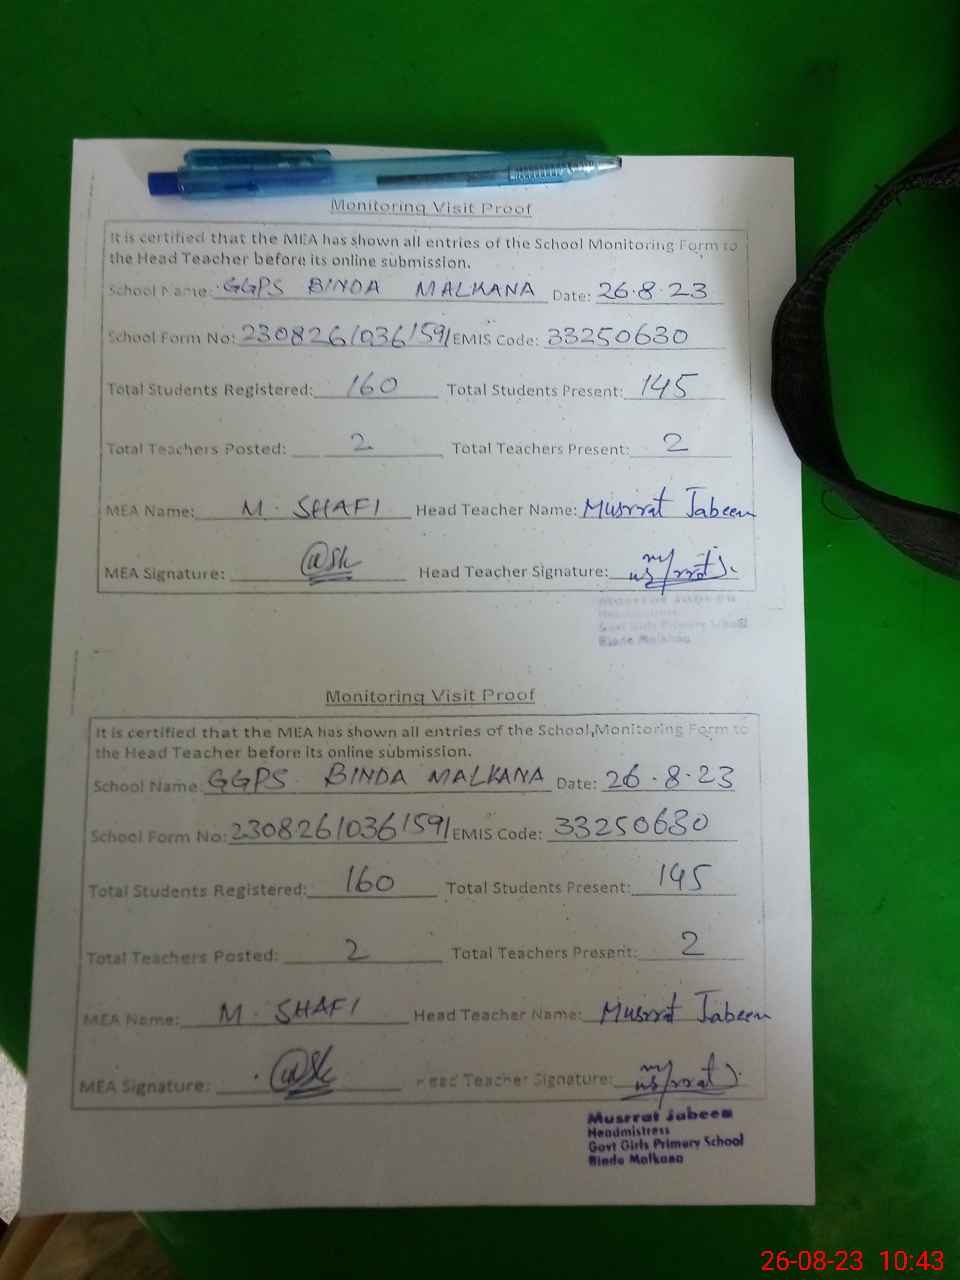 Monitoring Visit Proof
It is certified that the MEA has shown all entries of the School Monitoring Form to
the Head Teacher before its online submission.
School Name: GGPS BINDA MALKANA Date: 26.8.23
School Form No: 230826/036/591 EMIS Code: 33250630
Total Students Registered: 160 Total Students Present: 145
Total Teachers Posted: 2 Total Teachers Present: 2
MEA Name: M. SHAFI Head Teacher Name: Musrrat Jabeen
MEA Signature: Head Teacher Signature:
Musrrat Jabeen
Headmistress
Govt Girls Primary School
Binda Malkana
Monitoring Visit Proof
It is certified that the MEA has shown all entries of the School Monitoring Form to
the Head Teacher before its online submission.
School Name: GGPS BINDA MALKANA Date: 26.8.23
School Form No: 230826/036/591 EMIS Code: 33250630
Total Students Registered: 160 Total Students Present: 145
Total Teachers Posted: 2 Total Teachers Present: 2
MEA Name: M. SHAFI Head Teacher Name: Musrrat Jabeen
MEA Signature: Head Teacher Signature:
Musrrat Jabeen
Headmistress
Govt Girls Primary School
Binda Malkana
26-08-23 10:43